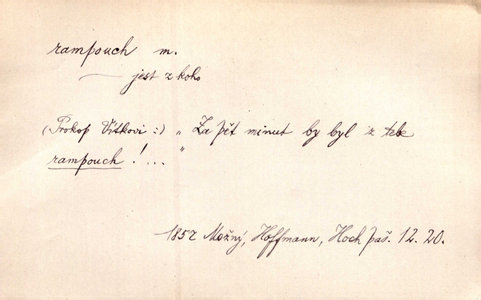 rampouch m.
— jest z koho
(Prokop Vítkovi:) „Za pět minut by byl z tebe
rampouch!..."
1857 Možný, Hoffmann, Hoch paš. 12. 20.